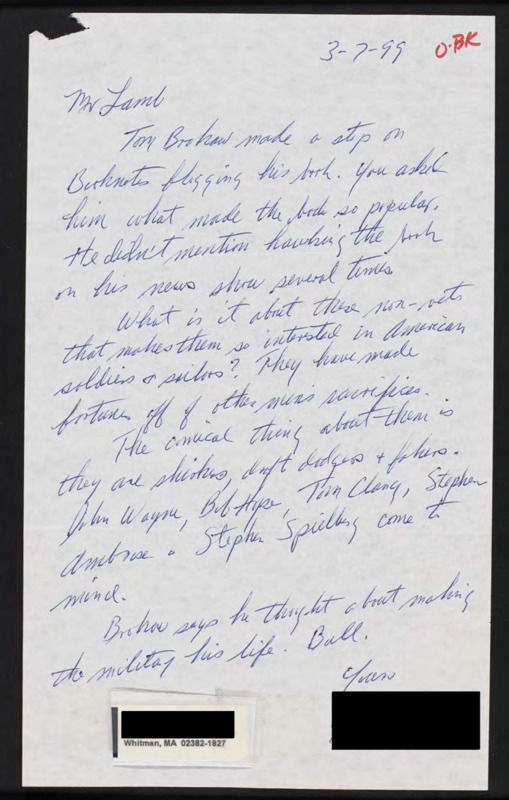 3-7-99
O.BK
Mr Lamb
Tom Brokaw made a stop on
Booknotes flogging his book. You asked
him what made the book so popular.
He didn't mention hawking the book
on his news show several times.
What is it about these non-vets
that makes them so interested in American
soldiers & sailors? They have made
fortunes off of other men's sacrifices.
The comical thing about them is
they are shirkers, draft dodgers & fakers.
John Wayne, Bob Hope, Tom Clancy, Stephen
Ambrose & Stephen Spielberg come to
mind.
Brokaw says he thought about making
the military his life. Bull.
Yours
Whitman, MA 02382-1827